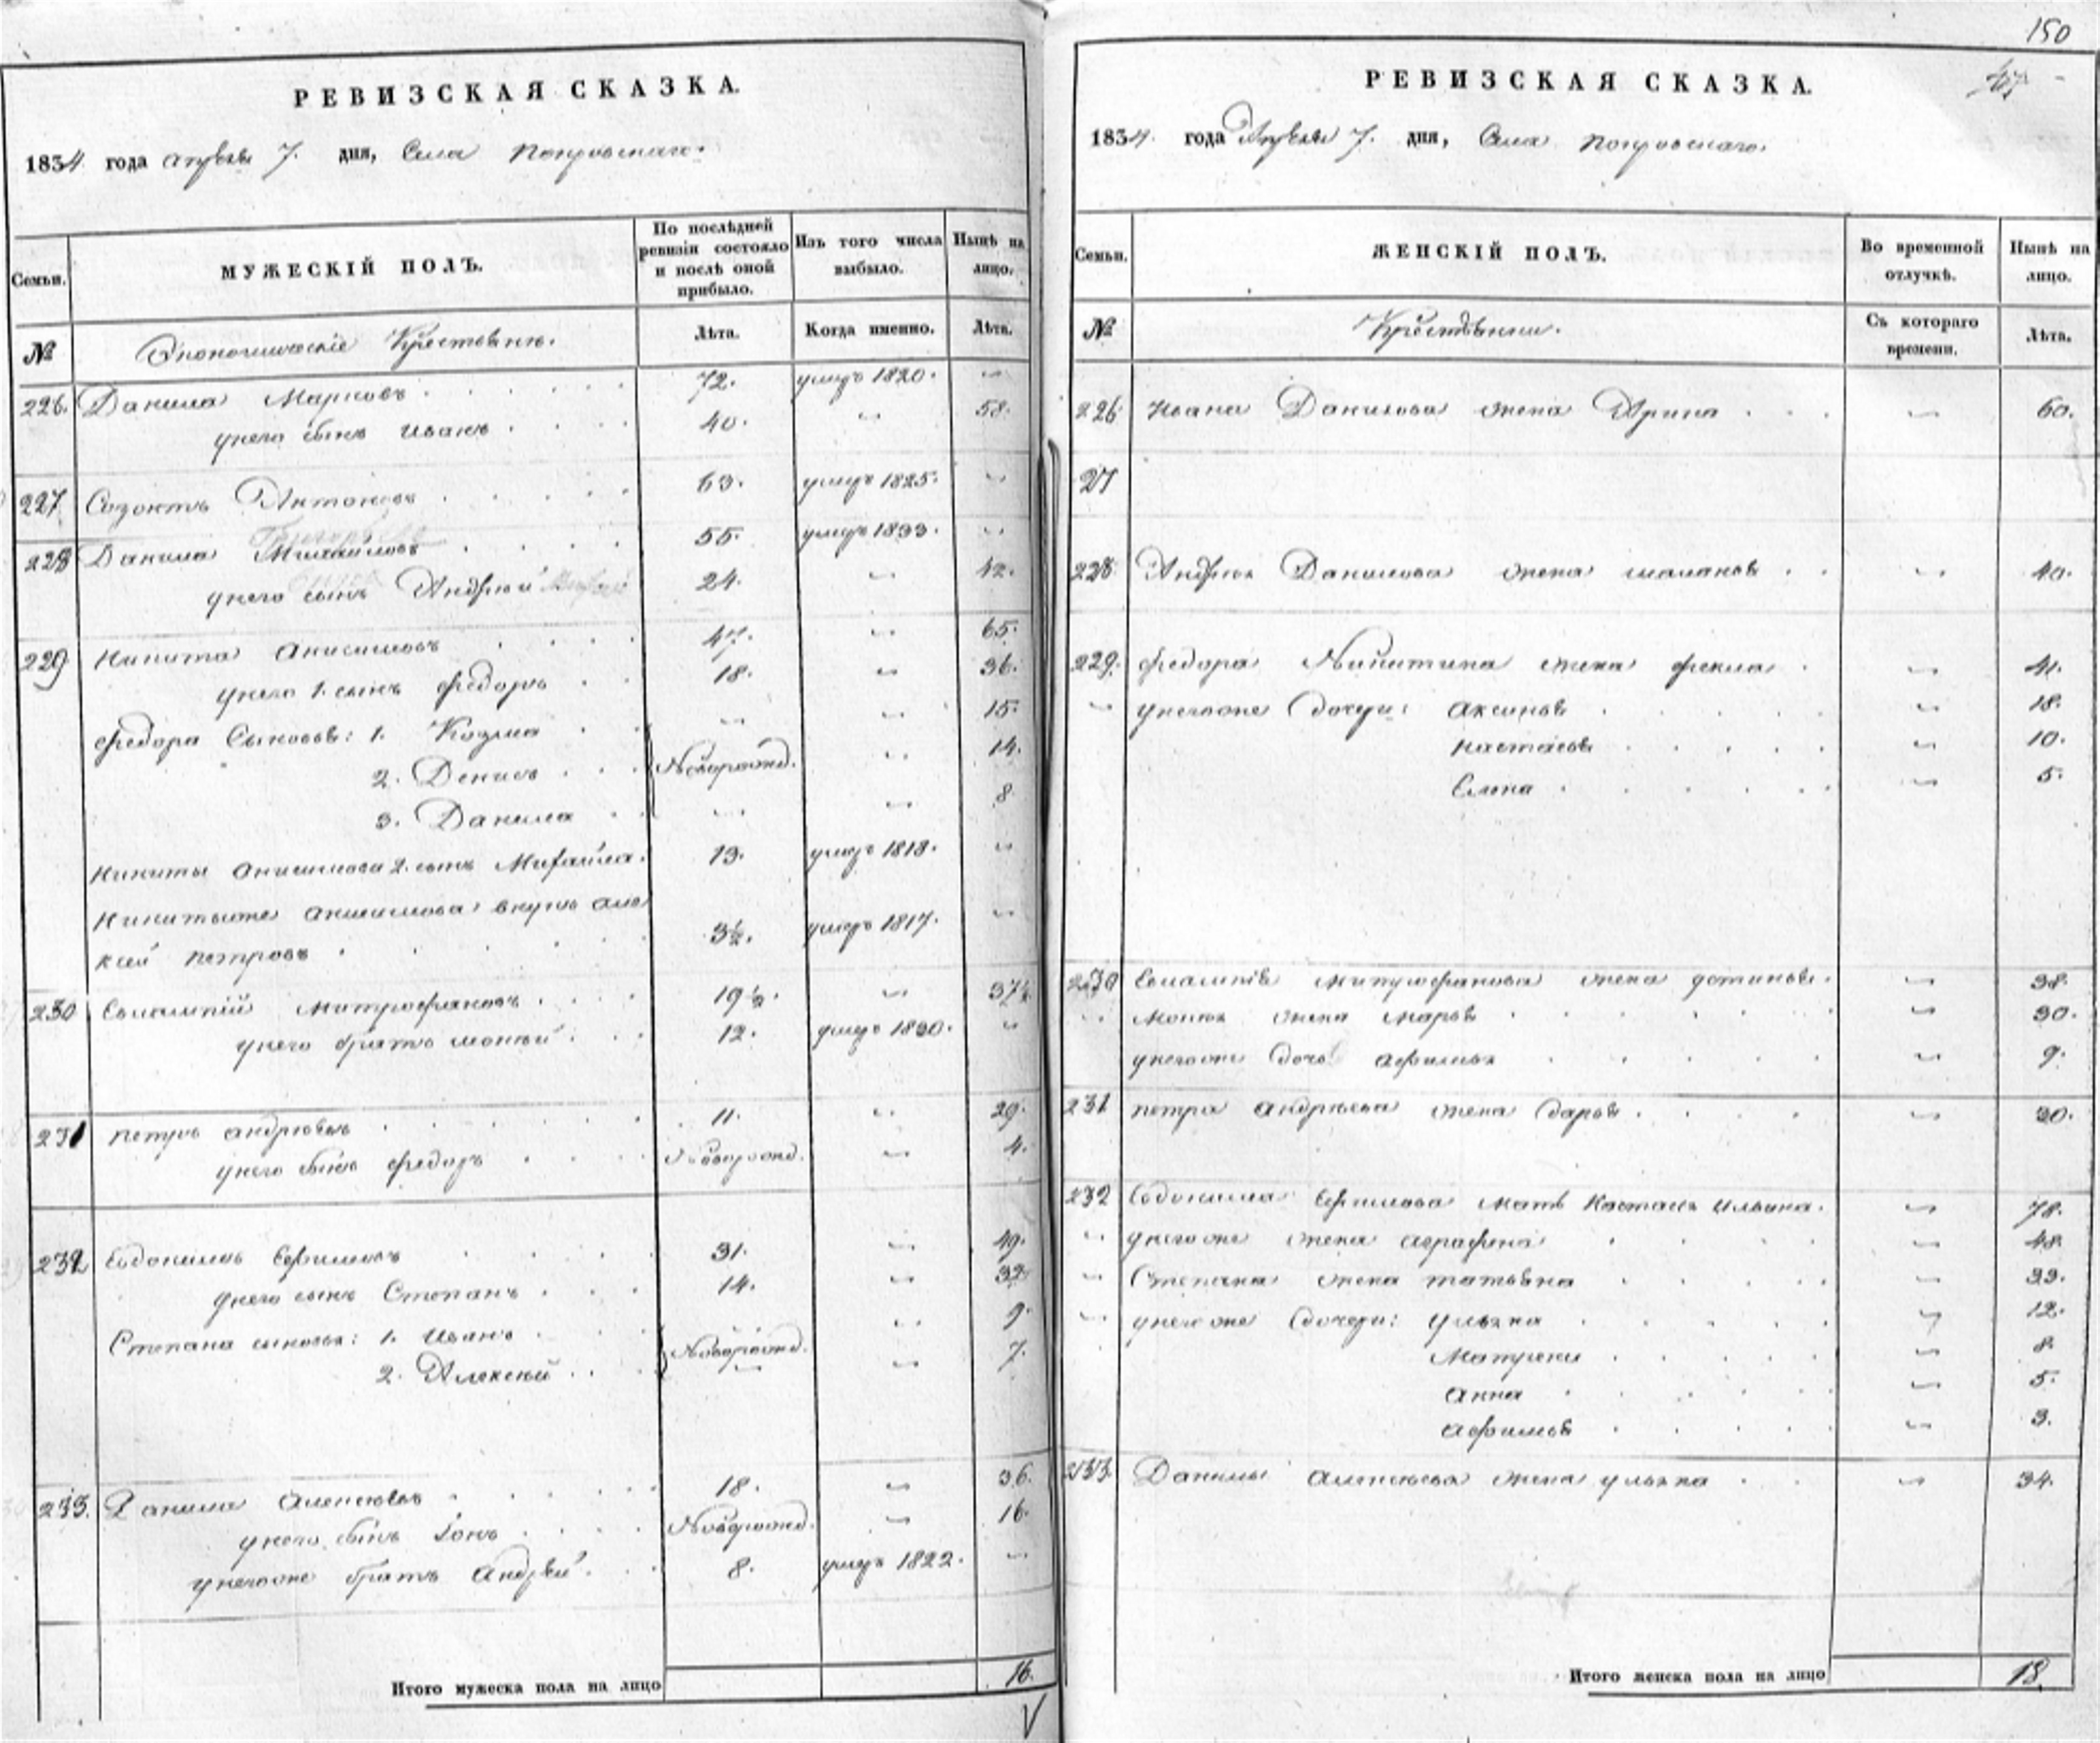 150
РЕВИЗСКАЯ СКАЗКА.
1834 года апреля 7. дня, Села Покровскаго.
Семьи.
МУЖЕСКІЙ ПОЛЪ.
По послѣдней ревизіи состояло и послѣ оной прибыло.
Изъ того числа выбыло.
Нынѣ на лицо.
№
Экономическіе Крестьяне.
Лѣта.
Когда именно.
Лѣта.
226. Данила Марковъ 72. умеръ 1820. "
у него сынъ Иванъ 40. " 58.
227. Созонтъ Антоновъ 63. умеръ 1825. "
228 Данила Михайловъ 55. умеръ 1833. "
у него сынъ Андрей 24. " 42.
229 Никита Анисимовъ 47. " 65.
у него 1. сынъ Федоръ 18. " 36.
Федора Сыновья: 1. Козма " " 15.
2. Денисъ Новорожд. " 14.
3. Данила " " 8
Никиты Анисимова 2. сынъ Михайла. 13. умеръ 1818. "
Никиты же Анисимова внукъ Але
ксей Петровъ 3½. умеръ 1817. "
230 Евлампій Митрофановъ 19½. " 37½
у него братъ Мокей 12. умеръ 1830. "
231 Петръ Андреевъ 11. " 29.
у него сынъ Федоръ Новорожд. " 4.
232 Евдокимъ Ефимовъ 31. " 49.
у него сынъ Степанъ 14. " 32
Степана сыновья: 1. Иванъ " 9.
2. Алексей Новорожд. " 7.
233. Данила Алексеевъ 18. " 36.
у него сынъ Іонъ Новорожд. " 16.
у него же братъ Андрей 8. умеръ 1822. "
Итого мужеска пола на лицо 16.
РЕВИЗСКАЯ СКАЗКА.
1834. года Апреля 7. дня, Села Покровскаго.
Семьи.
ЖЕНСКІЙ ПОЛЪ.
Во временной отлучкѣ.
Нынѣ на лицо.
№
Крестьянки.
Съ котораго времени.
Лѣта.
226 Ивана Данилова жена Арина " 60.
27
228. Андрея Данилова жена " 40.
229. Федора Никитина жена Фекла " 41.
" у него же дочери: Аксинья " 18.
Настасья " 10.
Елена " 5.
230 Евлампія Митрофанова жена Устинья. " 38.
" Мокея жена Марья " 30.
у него же дочь Афимья " 9.
231 Петра Андреева жена Дарья " 30.
232 Евдокима Ефимова мать Настасья Ильина. " 78.
" у него же жена Аграфена " 48.
" Степана жена Татьяна " 33.
" у него же дочери: Ульяна " 12.
Матрена " 8.
Анна " 5.
Афимья " 3.
233. Данилы Алексеева жена Ульяна " 34.
Итого женска пола на лицо 18.